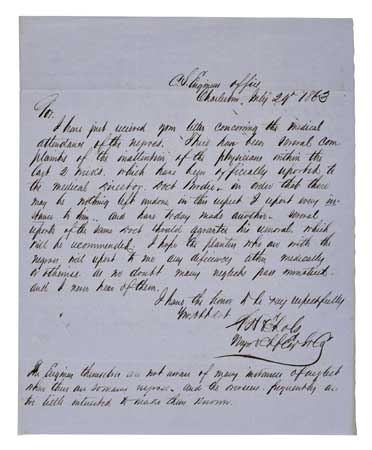 Engineer Office
Charleston, July 29th 1863
Sir,
I have just received your letter concerning the medical
attendance of the negroes. There has been several com
plaints of the inattention of the physicians within the
last 2 weeks, which have been officially reported to
the medical director. in order that there
may be nothing left undone in this respect I report every in
stance to him. and have today made another. Several
reports of the same sort should his removal, which
will be recommended. I hope the planters who are with the
negroes will report to me any deficiencies either medically
or otherwise. As no doubt many neglects pass unnoticed
and I never hear of them.
I have the honor to be very respectfully
Your obt svt
Echols
Major & Chf Eng
The Engineers themselves are not aware of many instances of neglect
when there are so many negroes. and the overseers frequently are
too little interested to make them known.